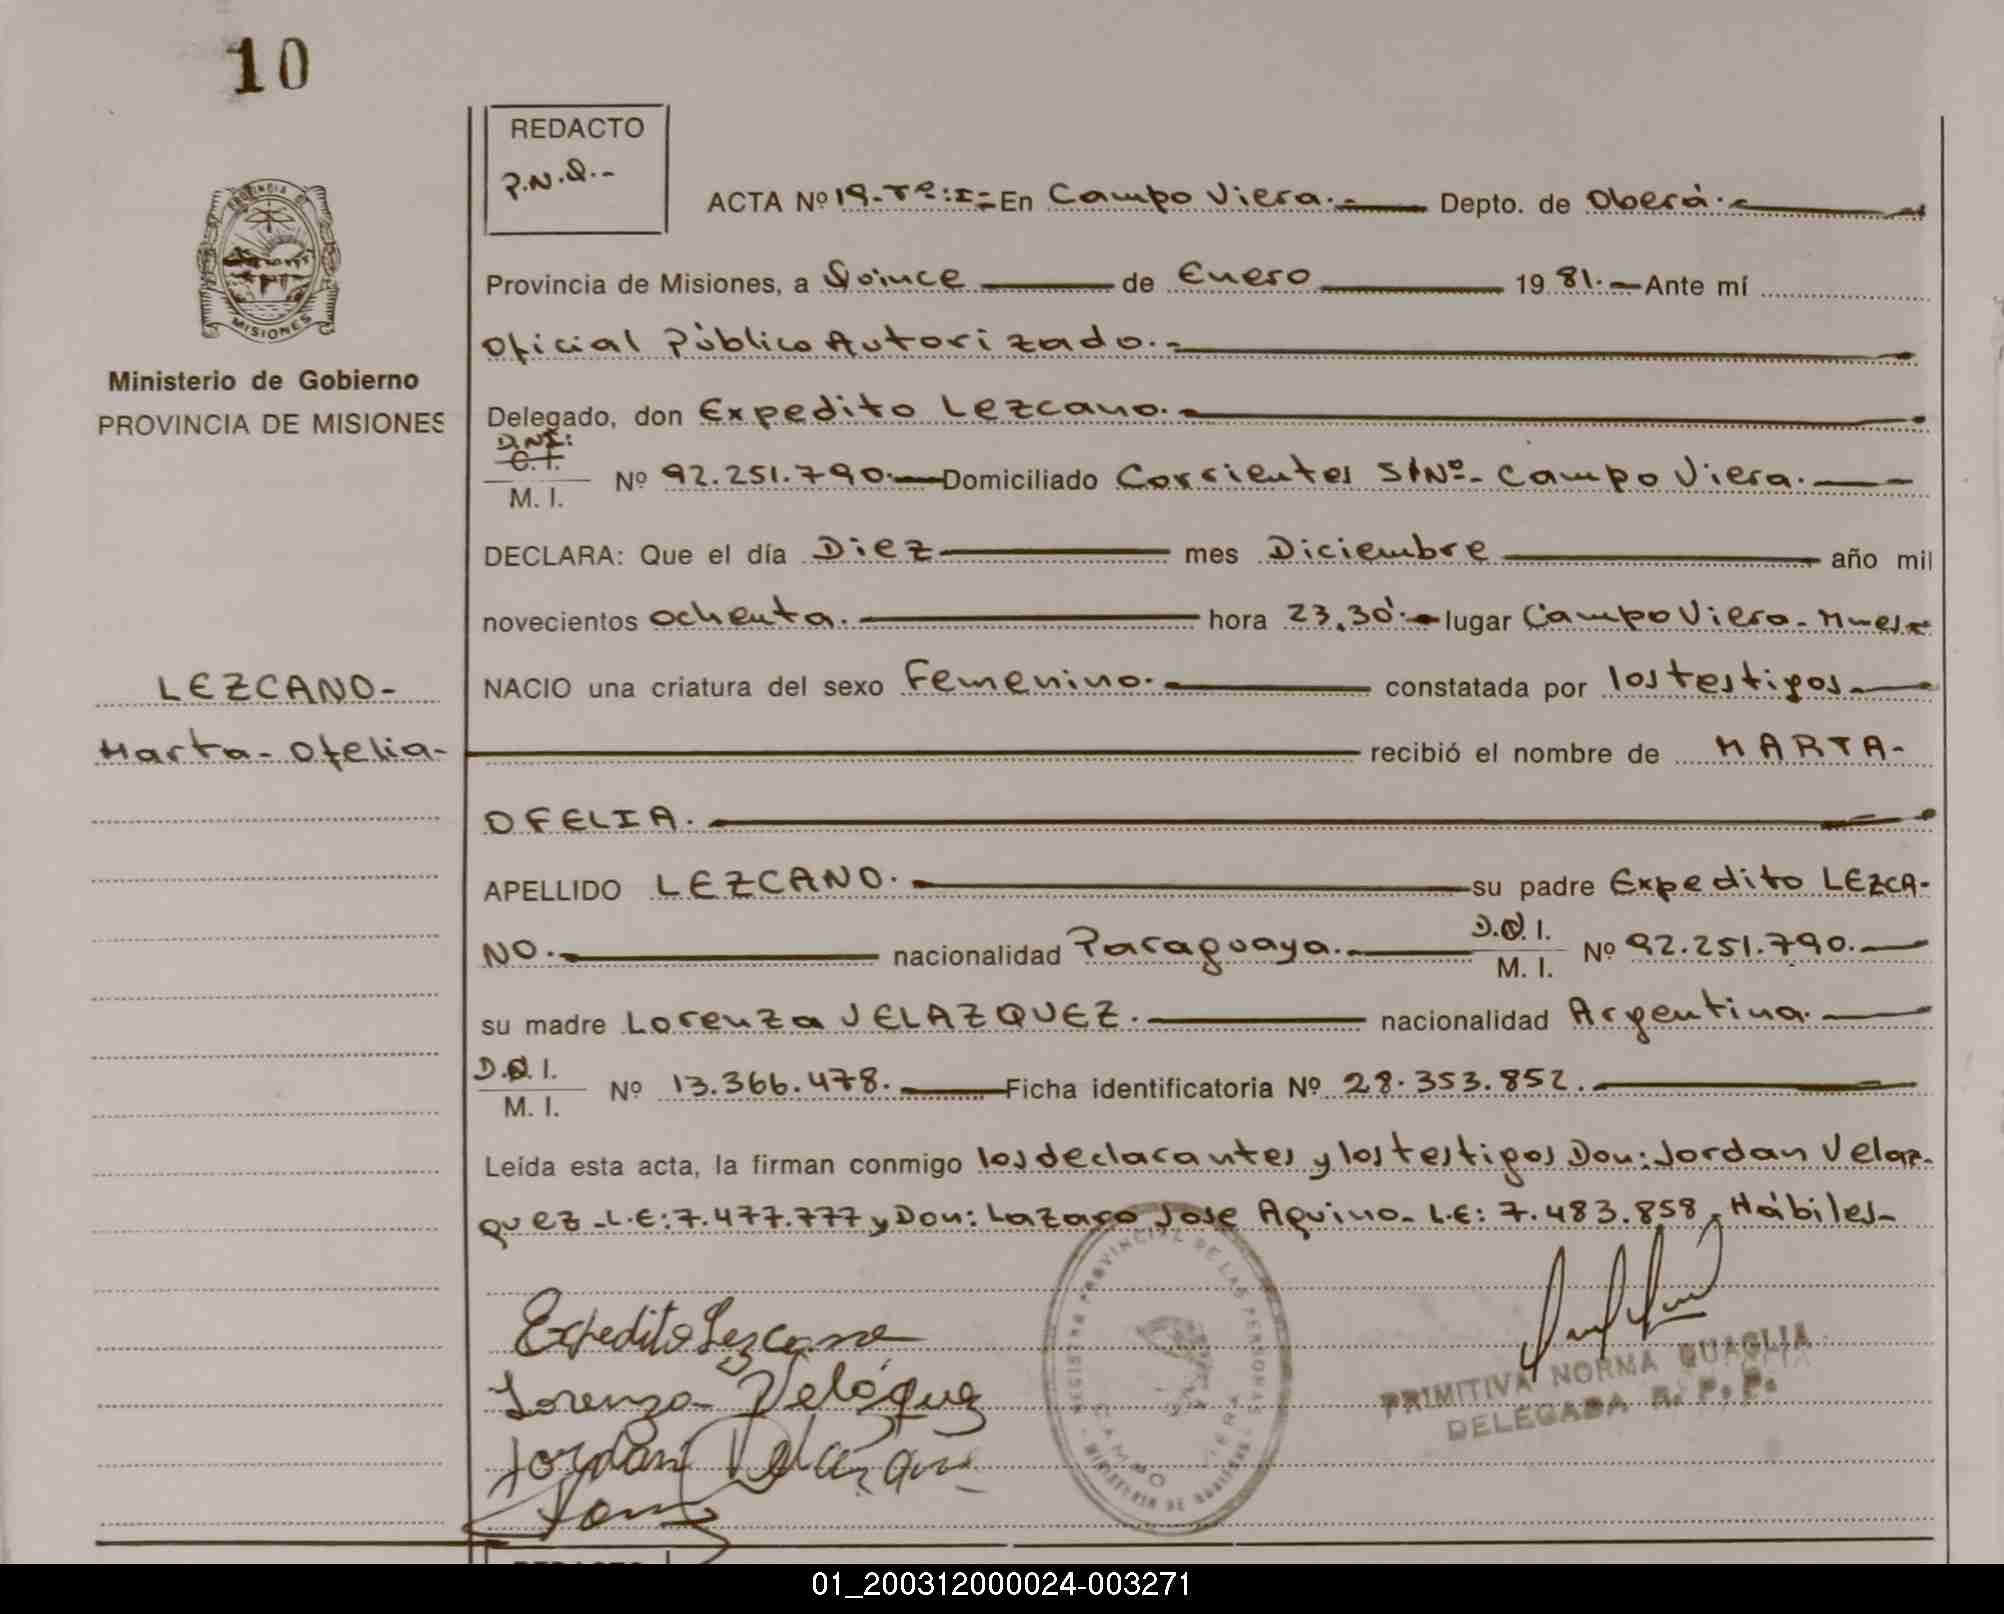 10
REDACTO
P.N.Q.-
ACTA Nº 19.-Tº:I=En Campo Viera.- Depto. de Oberá.-
Provincia de Misiones, a Quince de Enero 1981.- Ante mí
Oficial Público Autorizado.-
Delegado, don Expedito Lezcano.-
D.N.I:
C.I.
M. I. Nº 92.251.790.- Domiciliado Corrientes S/Nº- Campo Viera.-
DECLARA: Que el día Diez mes Diciembre año mil
novecientos ochenta. hora 23,30'.- lugar Campo Viera-
NACIO una criatura del sexo Femenino.- constatada por los testigos
recibió el nombre de MARTA-
OFELIA.
APELLIDO LEZCANO. su padre Expedito LEZCA-
NO.- nacionalidad Paraguaya. D.N.I. M. I. Nº 92.251.790.-
su madre Lorenza VELAZQUEZ. nacionalidad Argentina.
D.N.I. M. I. Nº 13.366.478. Ficha identificatoria Nº 28.353.852.
Leída esta acta, la firman conmigo los declarantes y los testigos Don: Jordan Velaz-
quez-L.E:7.477.777 y Don: Lazaro Jose Aquino- L.E: 7.483.858, Hábiles-
PROVINCIA DE
MISIONES
Ministerio de Gobierno
PROVINCIA DE MISIONES
LEZCANO-
Marta- Ofelia-
Expedito Lezcano
Lorenza Velásquez
Jordan Velazque
REGISTRO PROVINCIAL DE LAS PERSONAS
CAMPO VIERA
MINISTERIO DE GOBIERNO
PRIMITIVA NORMA QUAGLIA
DELEGADA R. P. P.
REDACTO
01_200312000024-003271